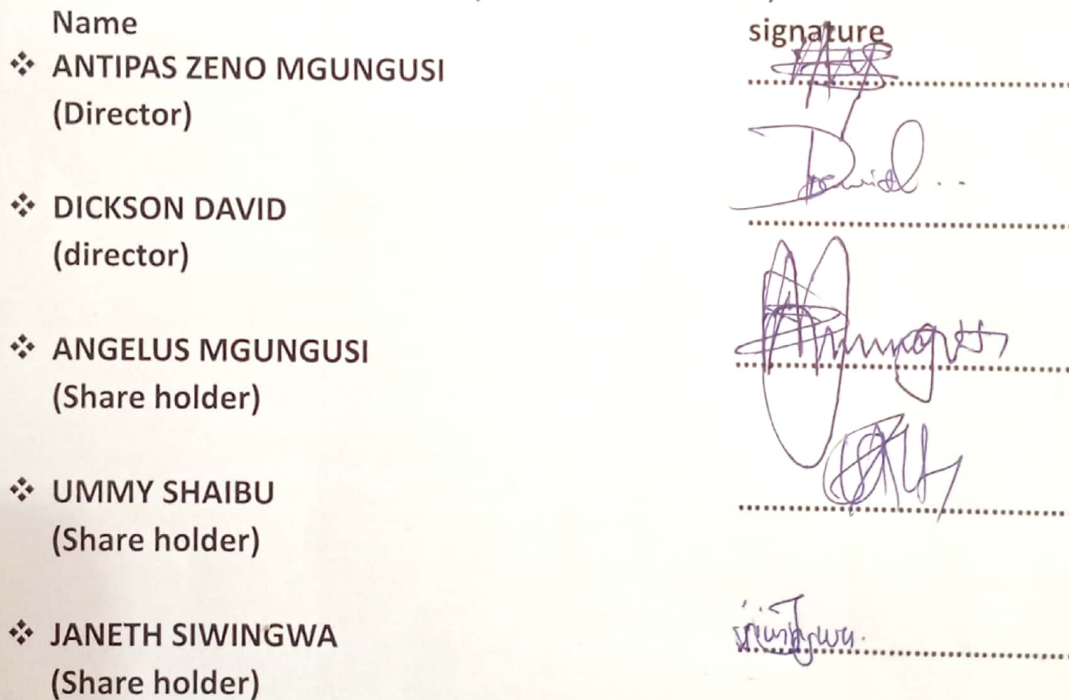 Name signature
❖ ANTIPAS ZENO MGUNGUSI ........................................
(Director)
❖ DICKSON DAVID ........................................
(director)
❖ ANGELUS MGUNGUSI ........................................
(Share holder)
❖ UMMY SHAIBU ........................................
(Share holder)
❖ JANETH SIWINGWA ........................................
(Share holder)